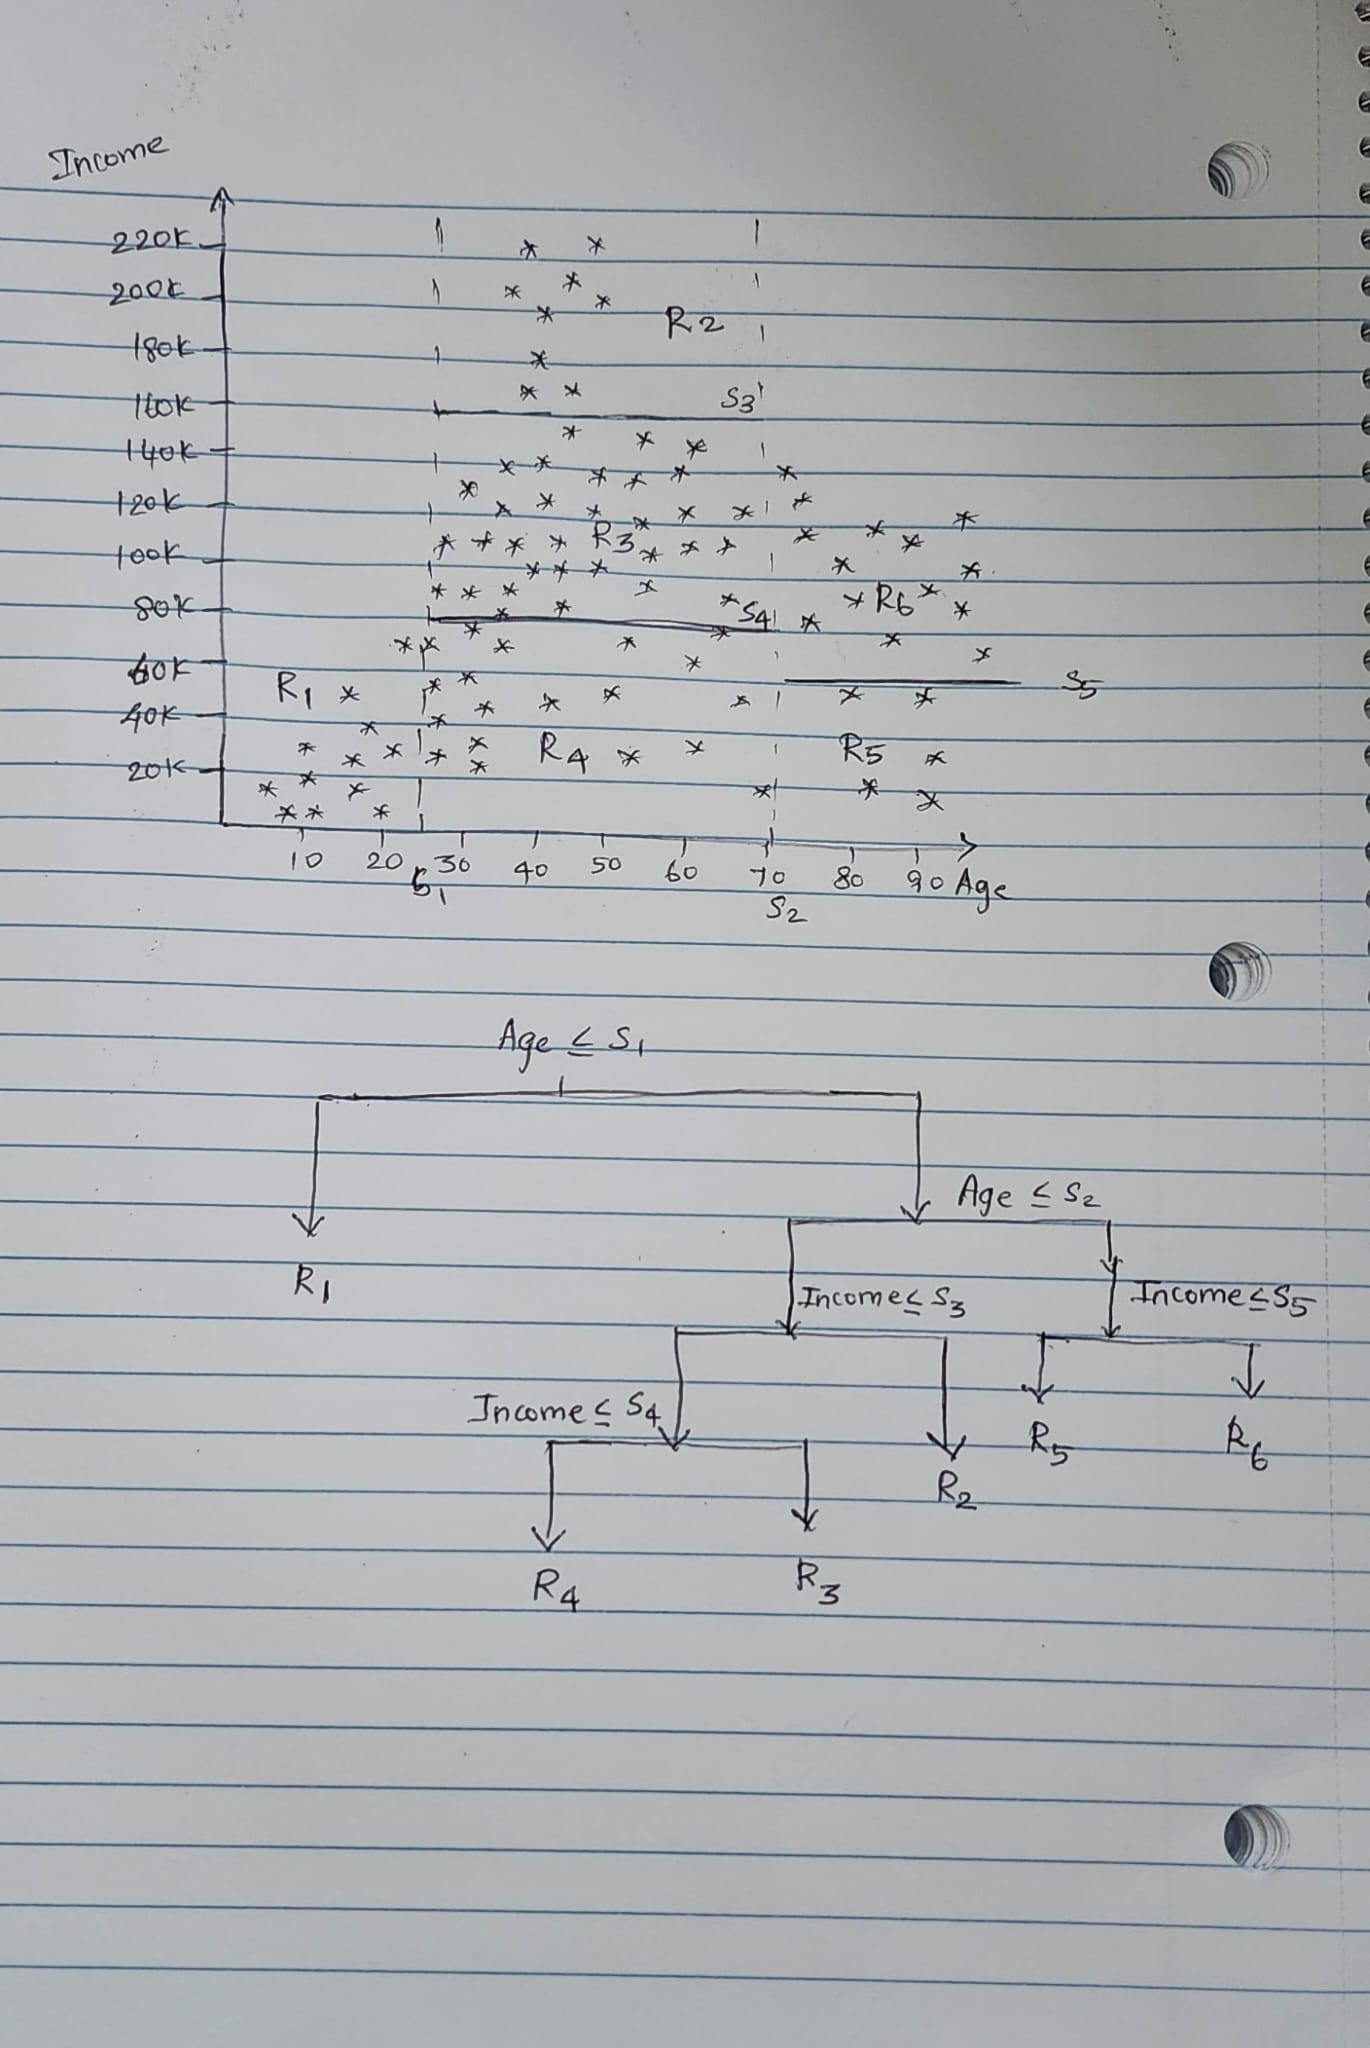 Income
220K
200K
180K
160K
140K
120K
100K
80K
60K
40K
20K
R2
S3
R3
S4
R6
R1
S5
R4
R5
10 20 30 40 50 60 70 80 90 Age
S1
S2
Age ≤ S1
Age ≤ S2
R1
Income ≤ S3
Income ≤ S5
Income ≤ S4
R5
R6
R2
R4
R3